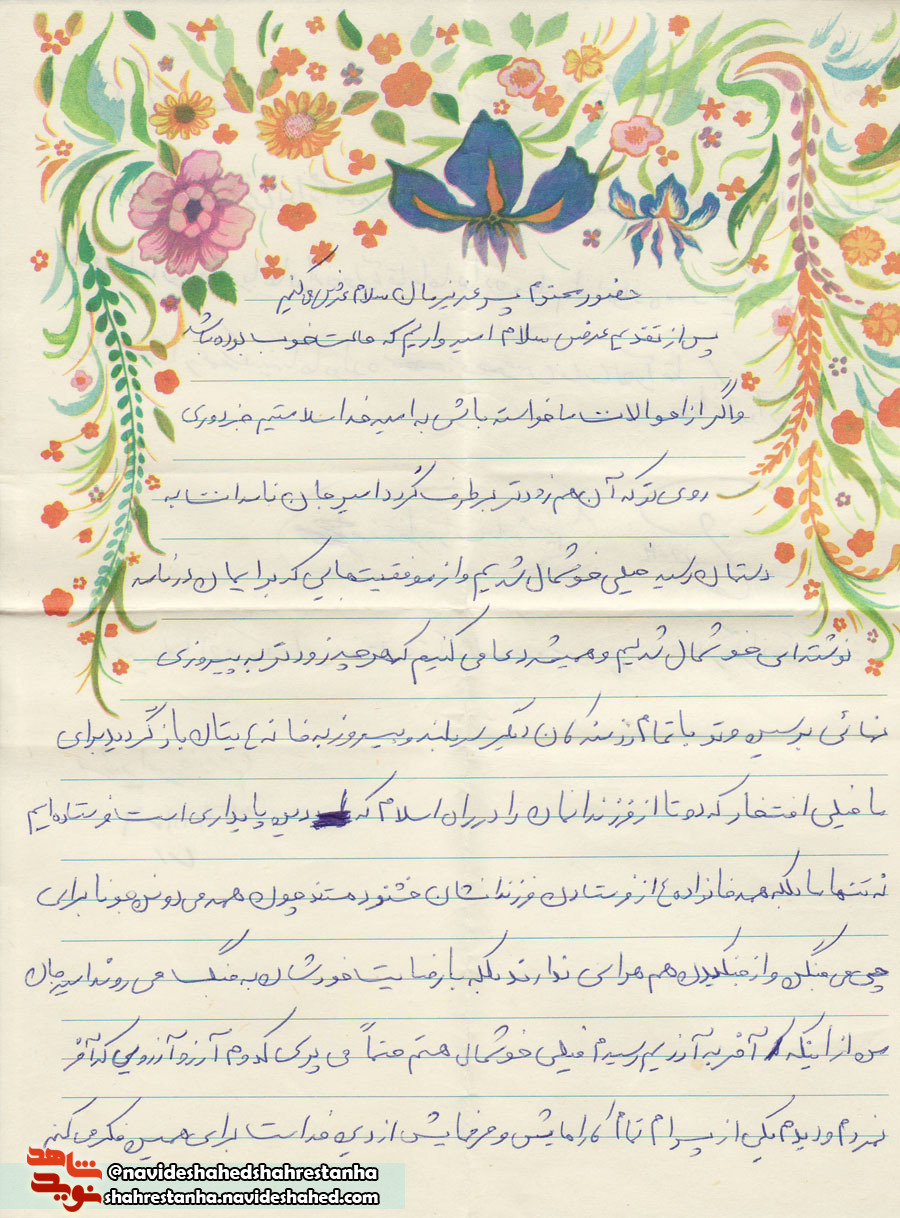 حضور محترم پسر عزیزمان سلام عرض می‌کنیم
پس از تقدیم عرض سلام امیدواریم که حالت خوب بوده باشد
واگر از احوالات ما خواسته باش به امید خدا سلامتیم جز دوری
روی تو که آن هم زودتر برطرف گردد امیر جان نامه ات به
دستمان رسید خیلی خوشحال شدیم و از موفقیتهایی که برایمان در نامه
نوشته ای خوشحال شدیم و همیشه دعا می کنیم که هر چه زودتر به پیروزی
نهائی برسین و تو با تمام رزمنده گان دیگر سربلند و پیروز به خانه ع یتان بازگردید برای
ما خیلی افتخار که دو تا از فرزندانمان را در ران اسلام که دین پایداری است فرستاده ایم
نه تنها ما بلکه همه خانواده ع از فرستادن فرزندانشان خشنود هستند چون همه می دونن جونا برای
چی می جنگن و از جنگیدن هم هراسی ندارند بلکه با رضایت خودشان به جنگ می روند امیر جان
من از اینکه آخر به آرزیم رسیدم خیلی خوشحال هستم حتماً می پرسی کدوم آرزو آرزویی که آخر
نمردم و دیدم یکی از پسرام تمام کارهایش و حرفهایش از دین خداست برای همین فکر می کنم
شاهد
نوید
@navideshahedshahrestanha
shahrestanha.navideshahed.com